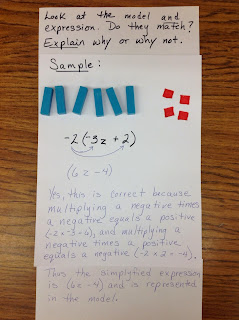 Look at the model and
expression. Do they match?
Explain why or why not.
Sample:
-2(-3z + 2)
(6z -4)
Yes, this is correct because
multiplying a negative times
a negative equals a positive
(-2 × -3 = 6), and multiplying a
negative times a positive
equals a negative (-2 × 2 = -4).
Thus the simplyfied expression
is (6z - 4) and is represented
in the model.